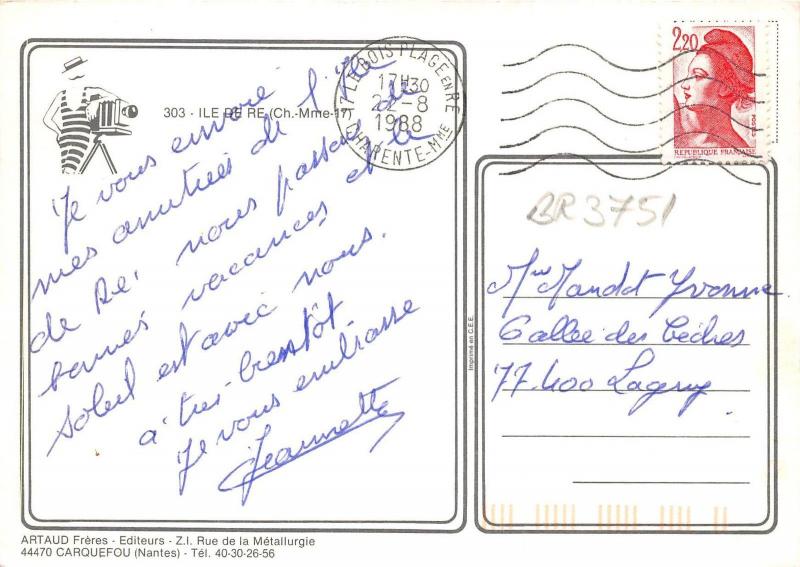 303 - ILE DE RE (Ch.-Mme-17)
17 LE BOIS PLAGE EN RE
17H30
2-8
1988
CHARENTE-MME
2,20
REPUBLIQUE FRANÇAISE
POSTES
BR 3751
Je vous envoie
mes amitiées de l'île
de Ré, nous passons de
bonnes vacances et le
soleil est avec nous.
à très bientôt.
Je vous embrasse
Jeannette
Imprimé en C.E.E.
Mme Mandot Yvonne
6 allee des Cèdres
77.400 Lagny
ARTAUD Frères - Editeurs - Z.I. Rue de la Métallurgie
44470 CARQUEFOU (Nantes) - Tél. 40-30-26-56